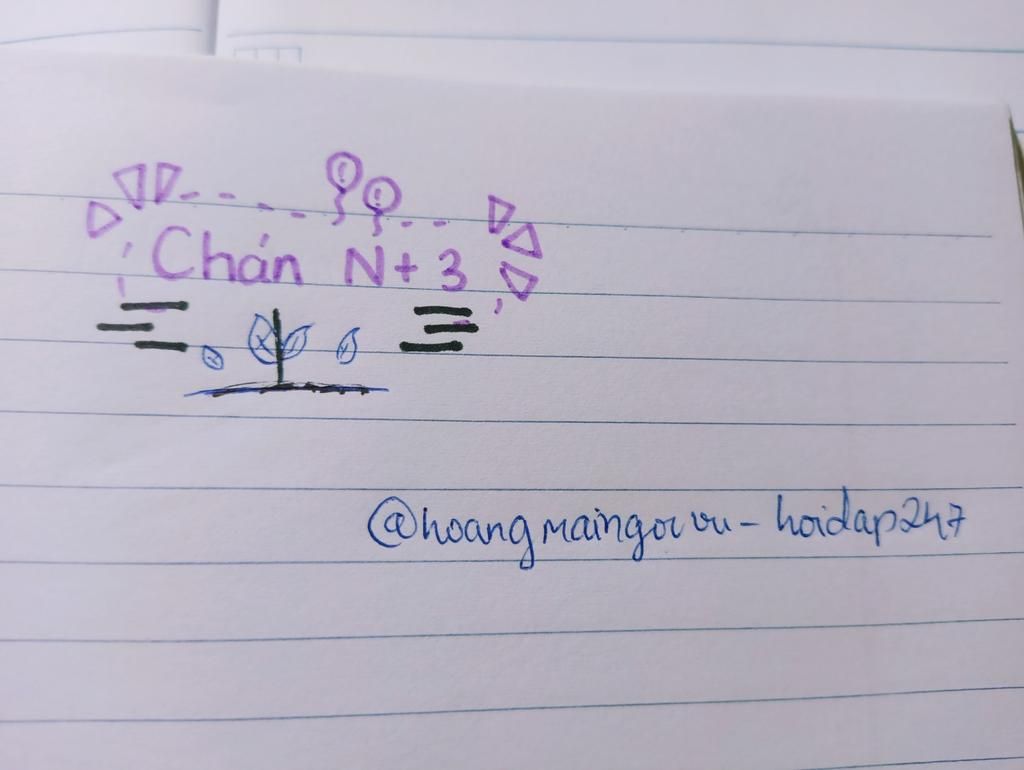 Chán N+3
@hoangmaingocvu - hoidap247